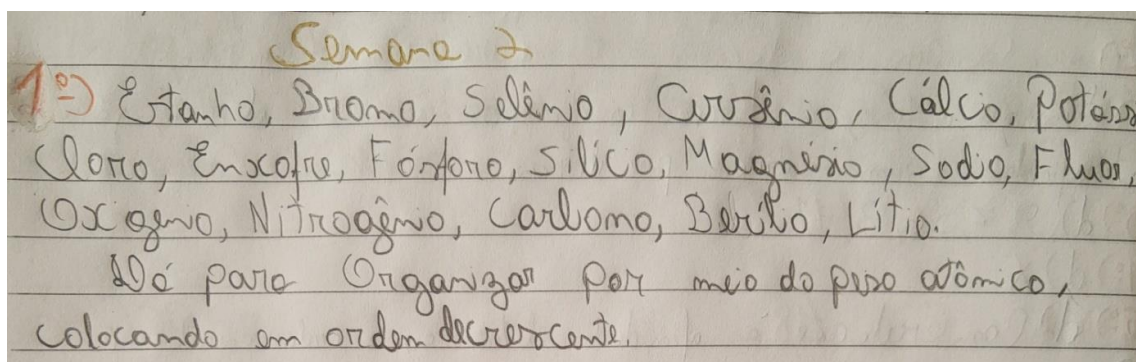 Semana 2
1º) Estanho, Bromo, Selênio, Arsênio, Cálcio, Potássio
Cloro, Enxofre, Fósforo, Silíco, Magnésio, Sodio, Fluor,
Oxigenio, Nitrogênio, Carbono, Berílio, Lítio.
Dá para Organizar por meio do peso atômico,
colocando em ordem decrescente.